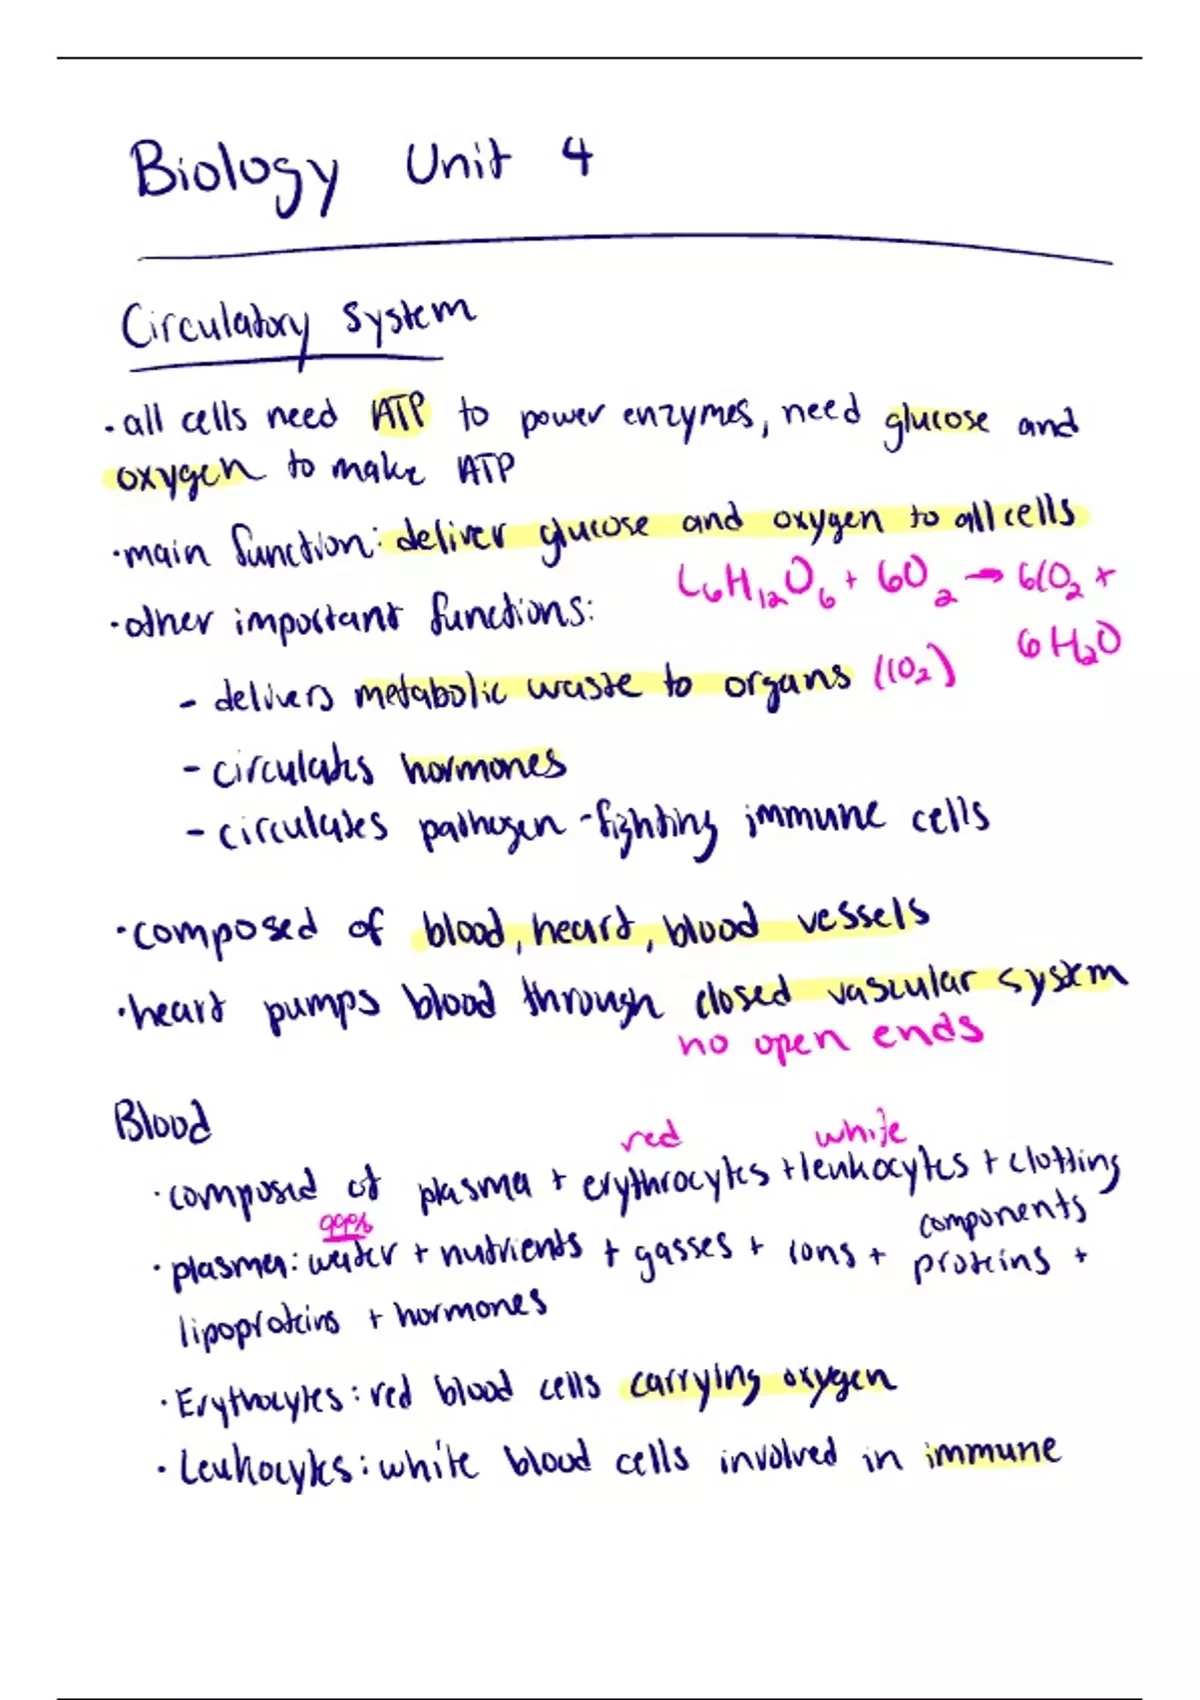 Biology Unit 4
Circulatory System
· all cells need ATP to power enzymes, need glucose and
oxygen to make ATP
· main function: deliver glucose and oxygen to all cells
C6H12O6 + 6O2 → 6CO2 +
6H2O
· other important functions:
- delivers metabolic waste to organs (CO2)
- circulates hormones
- circulates pathogen-fighting immune cells
· composed of blood, heart, blood vessels
· heart pumps blood through closed vascular system
no open ends
Blood
red white
· composed of plasma + erythrocytes + leukocytes + clotting
components
99%
· plasma: water + nutrients + gasses + ions + proteins +
lipoproteins + hormones
· Erythocytes: red blood cells carrying oxygen
· Leukocytes: white blood cells involved in immune